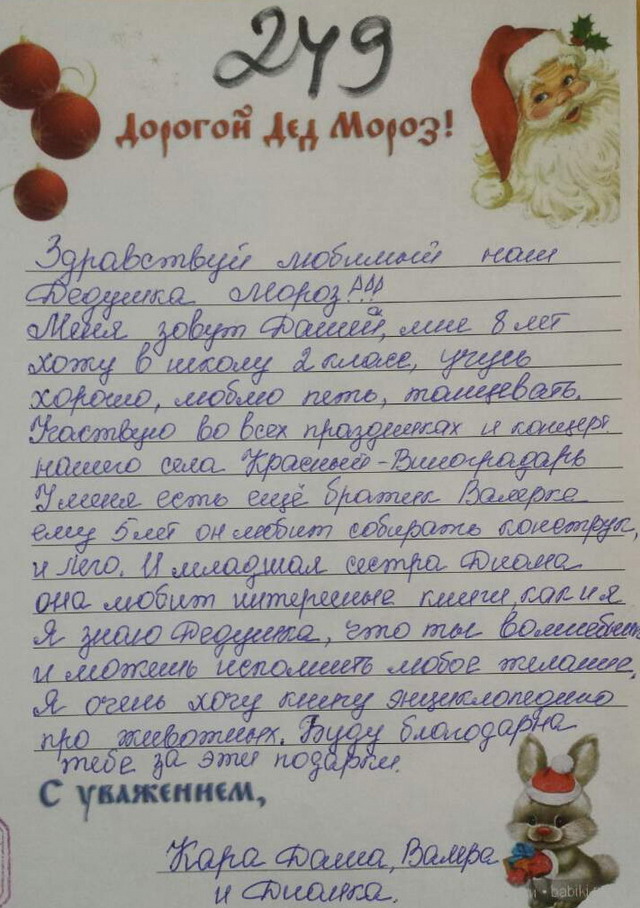 249
Дорогой Дед Мороз!
Здравствуй любимый наш
Дедушка Мороз!!!
Меня зовут Дашей, мне 8 лет
хожу в школу 2 класс, учусь
хорошо, люблю петь, танцевать.
Участвую во всех праздниках и концерт.
нашего села Красный-Виноградарь
У меня есть ещё братик Валерка
ему 5 лет он любит собирать конструк,
и лего. И младшая сестра Диана
она любит интересные книги, как и я
Я знаю Дедушка, что ты волшебник
и можешь исполнить любое желание.
Я очень хочу книгу энциклопедию
про животных. Буду благодарна
тебе за эти подарки.
С уважением,
Кара Даша, Валера
и Дианка.
babiki